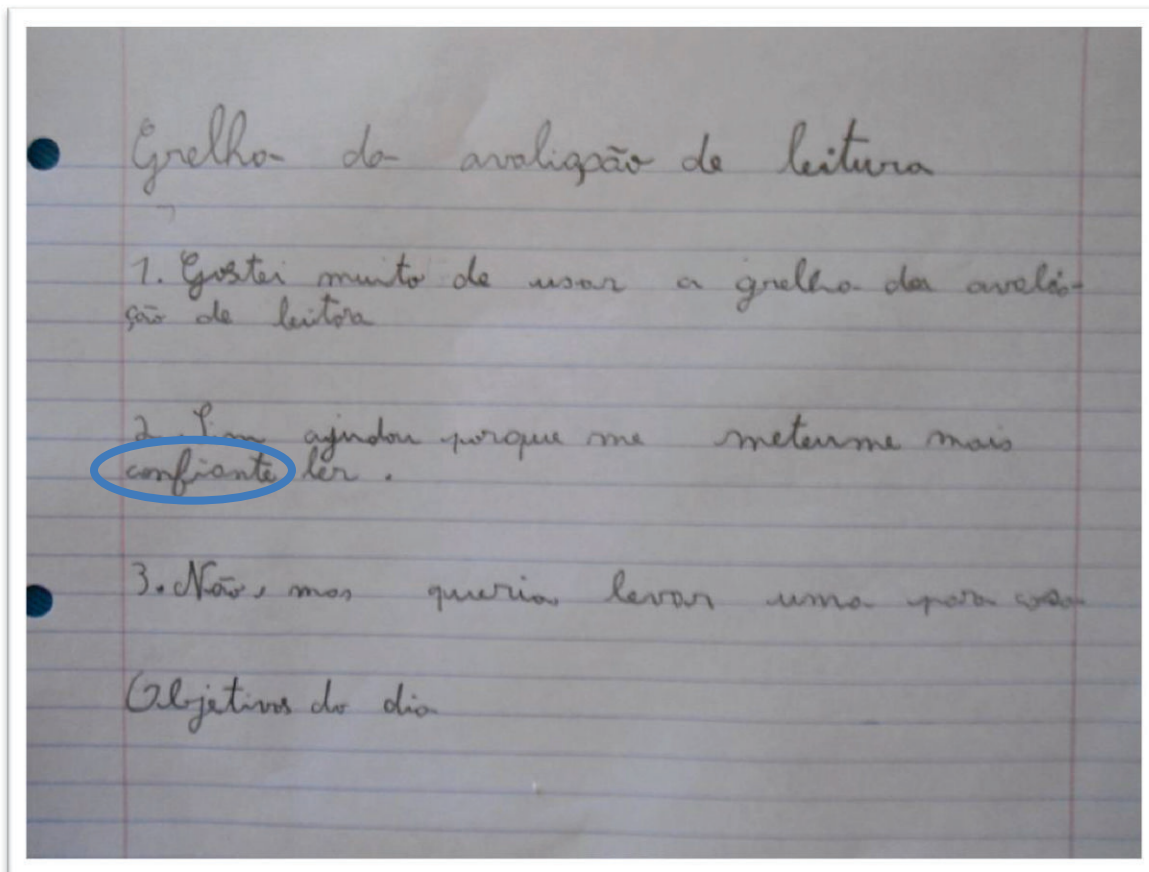 Grelha da avaliação de leitura
1. Gostei muito de usar a grelha da avalia-
ção de leitora
2. Sim ajudou porque me meteume mais
confiante ler.
3. Não, mas queria levar uma para casa
Objetivos do dia